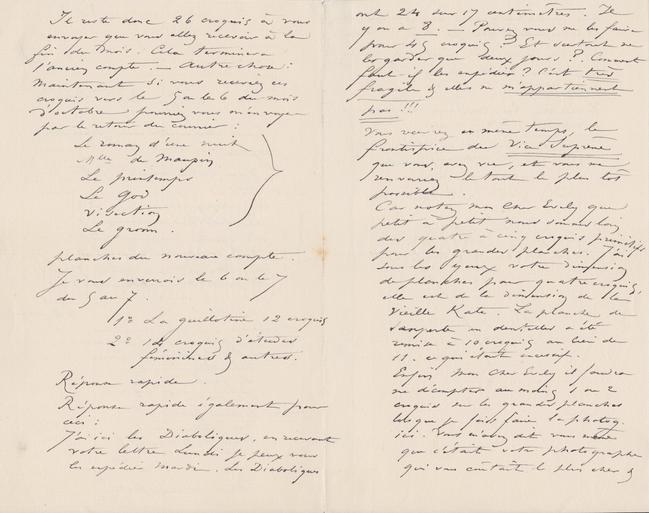 Il reste donc 26 croquis à vous
envoyer que vous allez recevoir à la
fin du mois. Cela terminera
l'ancien compte. — Autre chose :
Maintenant si vous receviez ces
croquis vers le 5 ou le 6 du mois
d'octobre, pourriez vous m'envoyer
par le retour du courrier :
Le roman d'une nuit
Mlle de Maupin
Le printemps
Le God
Vivisection
Le groom.
planches du nouveau compte.
Je vous enverrois le 6 ou le 7
du 5 au 7.
1º La guillotine 12 croquis
2º 14 croquis d'études
féminines & autres.
Réponse rapide.
Réponse rapide également pour
ceci :
J'ai ici les Diaboliques, en recevant
votre lettre Lundi je peux vous
les expédier Mardi. Les Diaboliques
ont 24 sur 17 centimètres. Il
y en a 8. — Pouvez vous me les faire
pour 45 croquis ? Et surtout ne
les garder que deux jours ? Comment
faut il les expédier ? C'est très
fragile & elles ne m'appartiennent
pas !!!
Vous recevrez en même temps, le
frontispice du Vice Suprême
que vous avez vu, et vous me
renverriez le tout le plus tôt
possible.
Car notez mon cher Evely que
petit à petit nous sommes loin
des quatre à cinq croquis primitifs
pour les grandes planches. J'ai
sous les yeux votre dimension
de planches pour quatre croquis,
elle est de la dimension de la
Vieille Kate. La planche de
en dentelles a été
remise à 10 croquis au lieu de
11. ce qui était excessif.
Enfin mon cher Evely il faudra
me décompter au moins 1 ou 2
croquis sur les grandes planches
lorsque je fais faire la photog.
ici. Vous m'avez dit vous même
que c'était votre photographe
qui vous coûtait le plus cher &